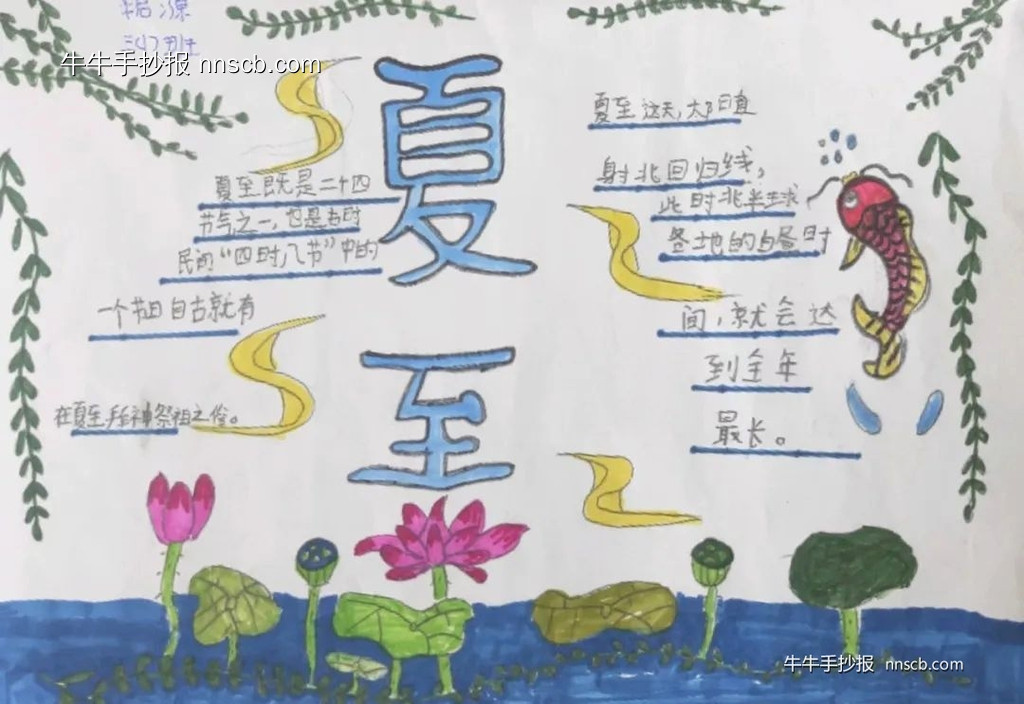 三(7)班
牛牛手抄报 nnscb.com
夏至
夏至既是二十四
节气之一,也是古时
民间“四时八节”中的
一个节日自古就有
在夏至拜神祭祖之俗。
夏至这天,太阳直
射北回归线,
此时北半球
各地的白昼时
间,就会达
到全年
最长。
牛牛手抄报 nnscb.com